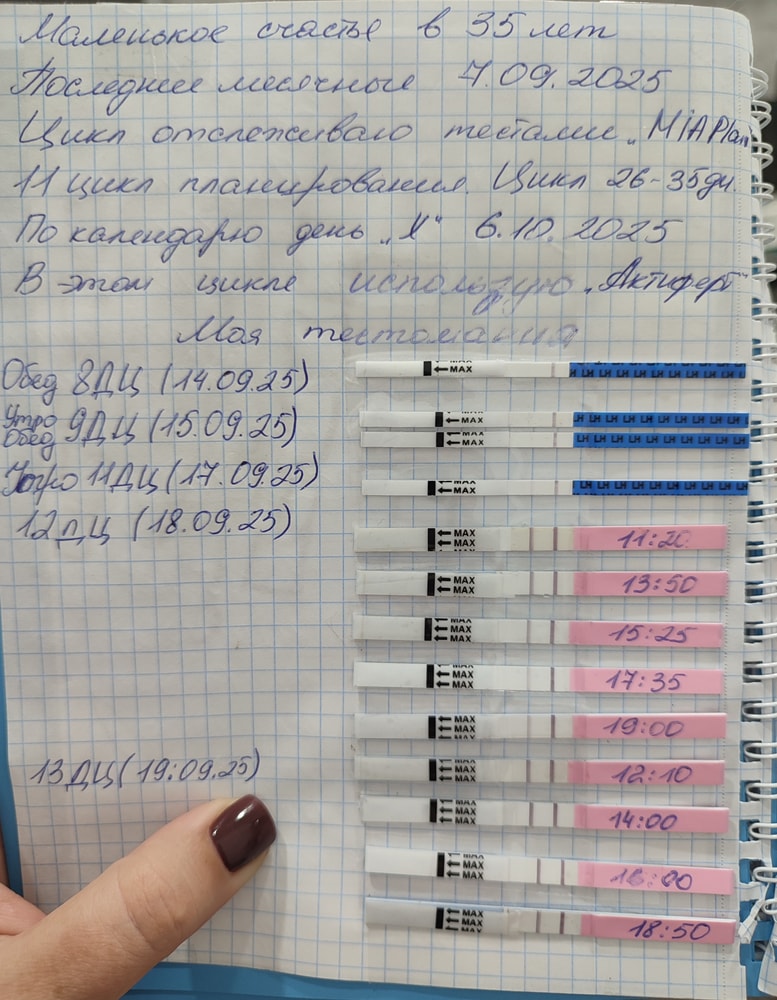 Маленькое счастье в 35 лет
Последние месячные 7.09.2025
Цикл отслеживаю тестами „MIAPlan"
11 цикл планирования. Цикл 26-35дн.
По календарю день „X" 6.10.2025
В этом цикле использую „Актиферт"
Моя тестомания
Обед 8ДЦ (14.09.25)
← MAX
LH LH LH LH LH LH LH
Утро
Обед 9ДЦ (15.09.25)
← MAX
LH LH LH LH LH LH LH
← MAX
LH LH LH LH LH LH LH
Утро 11ДЦ (17.09.25)
← MAX
LH LH LH LH LH LH LH
12дц (18.09.25)
← MAX
← MAX
11:20
← MAX
← MAX
13:50
← MAX
← MAX
15:25
← MAX
← MAX
17:35
← MAX
← MAX
19:00
13ДЦ (19:09.25)
← MAX
← MAX
12:10
← MAX
← MAX
14:00
← MAX
← MAX
16:00
← MAX
← MAX
← MAX
18:50